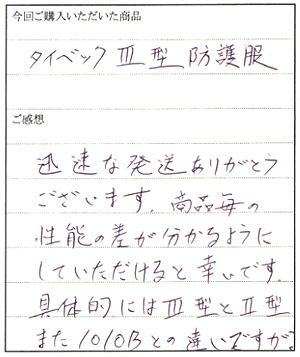 今回ご購入いただいた商品
タイベック Ⅲ型 防護服
ご感想
迅速な発送ありがとう
ございます。商品毎の
性能の差が分かるように
していただけると幸いです。
具体的にはⅢ型とⅡ型
また1010Bとの違いですが。